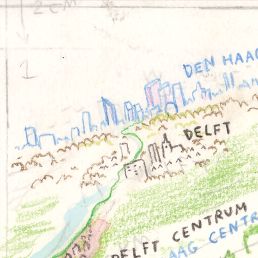 2 CM
1
DEN HAAG
DELFT
DELFT CENTRUM
AAG CENTR